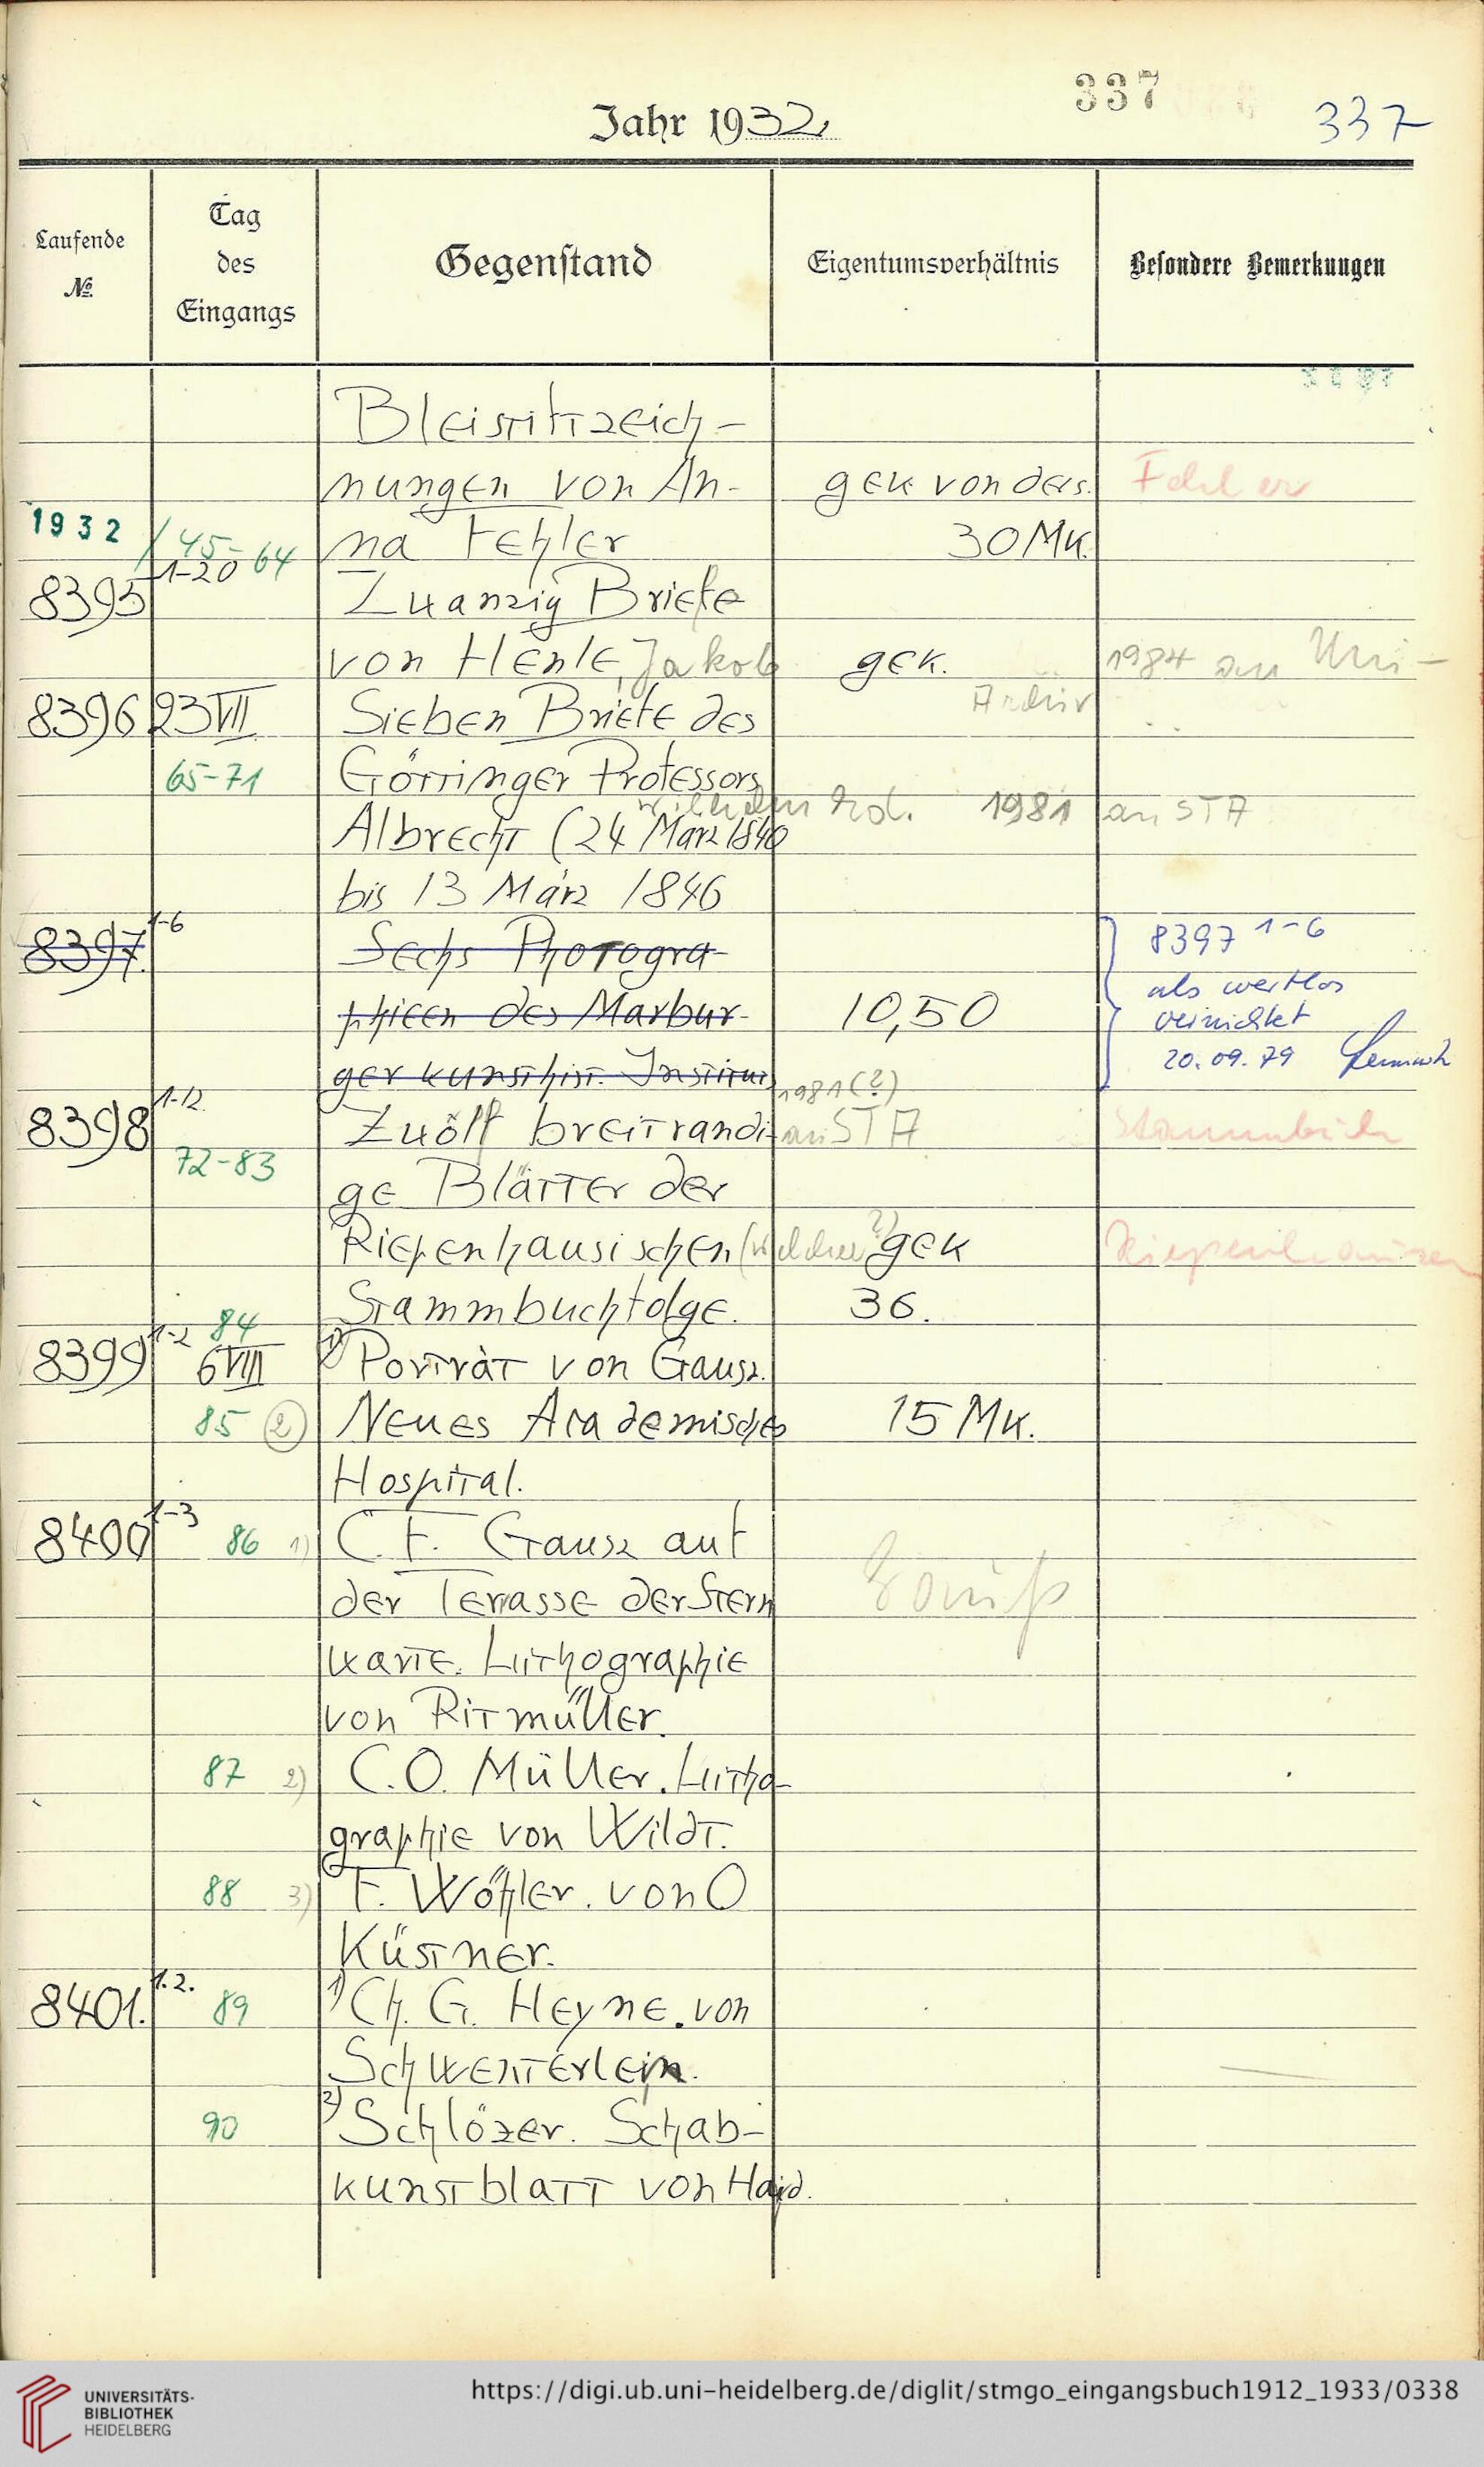 337
Jahr 1932.
337
Laufende №
Tag des Eingangs
Gegenstand
Eigentumsverhältnis
Besondere Bemerkungen
Bleistiftzeich-
nungen von An- gek von ders.
1932 / 45-64 na Fehler 30 Mk.
8395 1-20 Zwanzig Briefe
von Henle, Jakob gek. 1984 an Uni-
Archiv
8396 23 VII Sieben Briefe des
65-71 Göttinger Professors
Wilhelm Ed. 1981 an STA
Albrecht (24 März 1840
bis 13 März 1846
8397 1-6 Sechs Photogra- 8397 1-6
phieen des Marbur- 10,50 als wertlos
vernichtet
ger kunsthist. Instituts 20.09.79
1981 (?)
8398 1-12. Zwölf breitrandi- an STA Stammbuch
72-83
ge Blätter der
Riepenhausischen (welcher?) gek Riepenhausen
Stammbuchfolge. 36.
84
8399 1-2 6 VIII 1) Porträt von Gausz.
85 2) Neues Academisches 15 Mk.
Hospital.
8400 1-3 86 1) C. F. Gausz auf
der Terrasse der Stern Gauß
warte. Lithographie
von Ritmüller.
87 2) C. O. Müller. Litho-
graphie von Wildt.
88 3) F. Wöhler. von O
Küstner.
8401. 1.2. 89 1) Ch. G. Heyne. von
Schwenterlein.
90 2) Schlözer. Schab-
kunstblatt von Haid.
UNIVERSITÄTS-
BIBLIOTHEK
HEIDELBERG
https://digi.ub.uni-heidelberg.de/diglit/stmgo_eingangsbuch1912_1933/0338